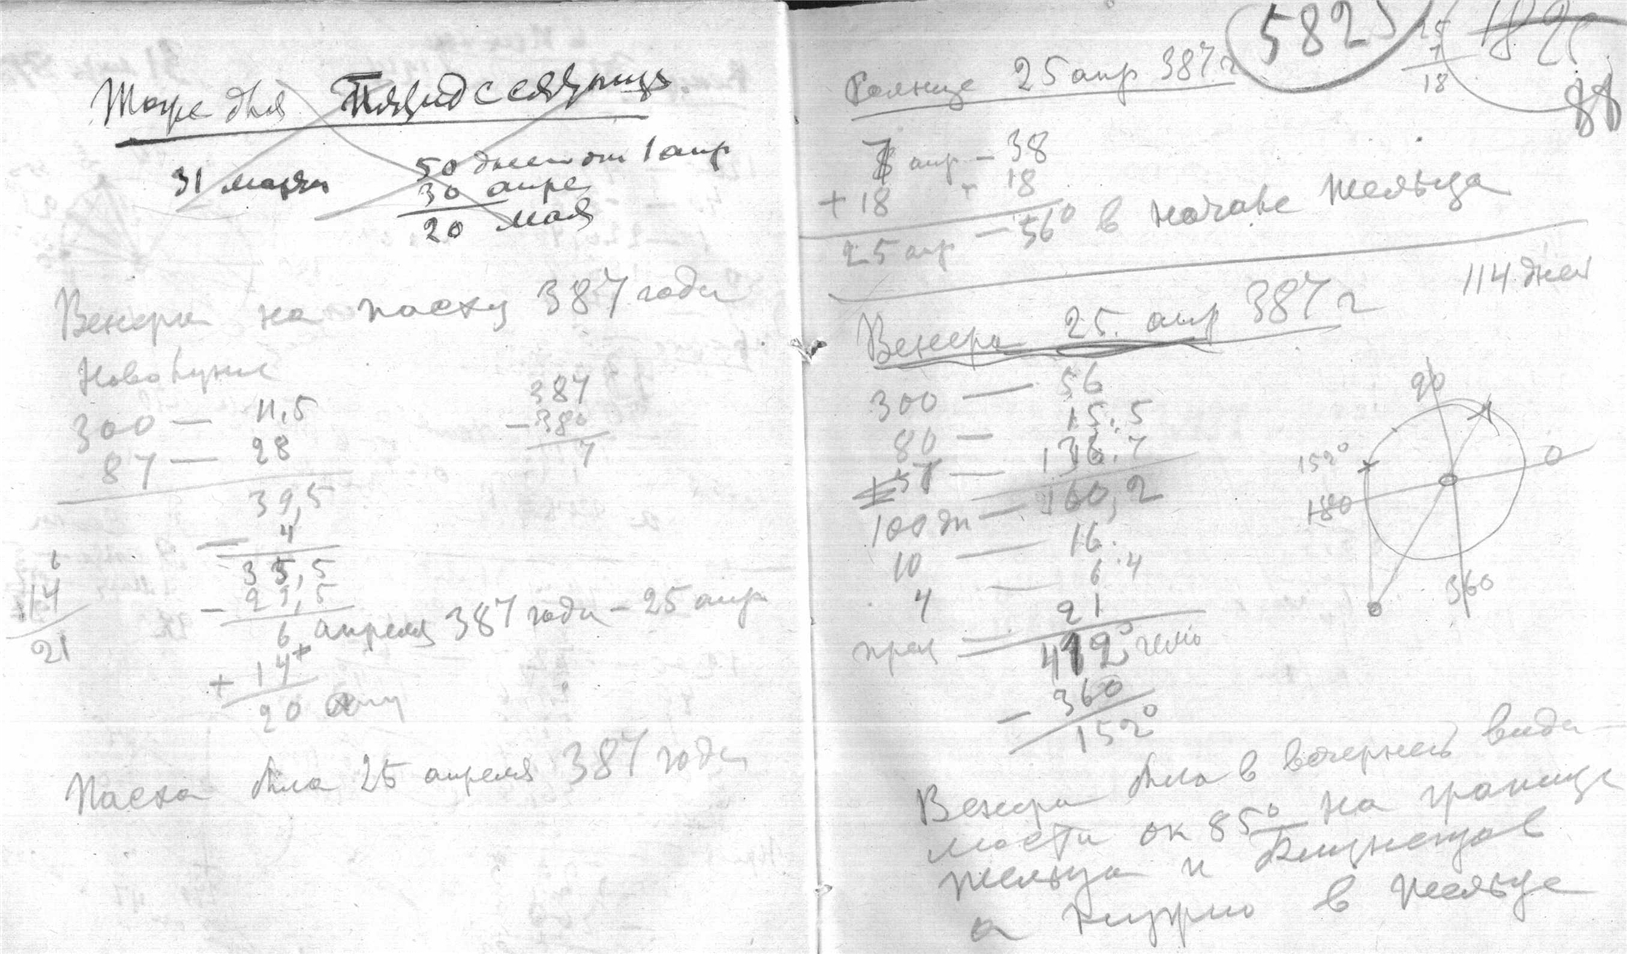 Тоже для Пятидесятницы
31 марта
50 дней от 1 апр
30 апре
20 мая
Венера на пасху 387 года
Новолуние
300 — 11,5
87 — 28
39,5
— 4
35,5
— 29,5
6 апреля 387 года — 25 апр
+ 14
20
387
— 380
7
14
21
Пасха была 25 апреля 387 года
5825
15
18
182
88
Солнце 25 апр 387 г
7 апр — 38
+ 18 + 18
25 апр — 56° в начале Тельца
114 дней
Венера 25 апр 387 г
300 — 56
80 — 15,5
7 — 136,7
100 дн — 160,2
10 — 16
4 — 6.4
прец — 21
412° гелио
— 360
152°
90
0
152°
180
360
Венера была в вечерней види-
мости ок 85° на границе
Тельца и Близнецов
а в Тельце